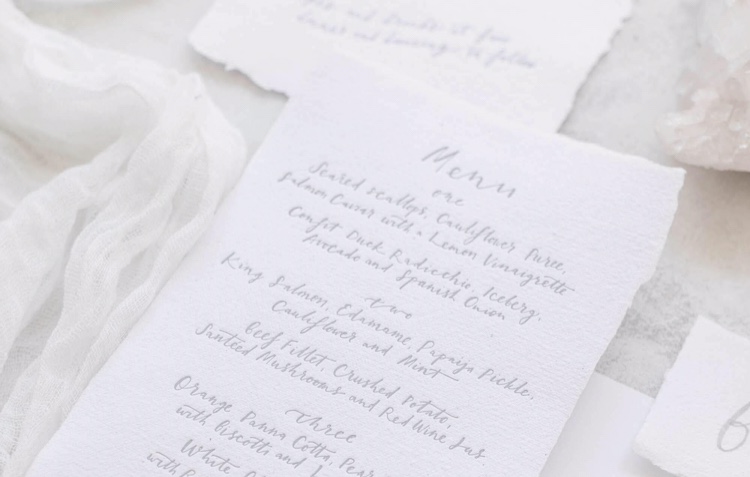 and Drinks at five
dinner and dancing to follow
Menu
one
Seared scallops, Cauliflower Puree,
Salmon Caviar with a Lemon Vinaigrette
Confit Duck Radicchio, Iceberg,
Avocado and Spanish Onion
two
King Salmon, Edamame, Papaya Pickle,
Cauliflower and Mint
Beef Fillet, Crushed Potato,
Santeed Mushrooms and Red Wine Jus
three
Orange Panna Cotta, Pear
with Biscotti and
White
with